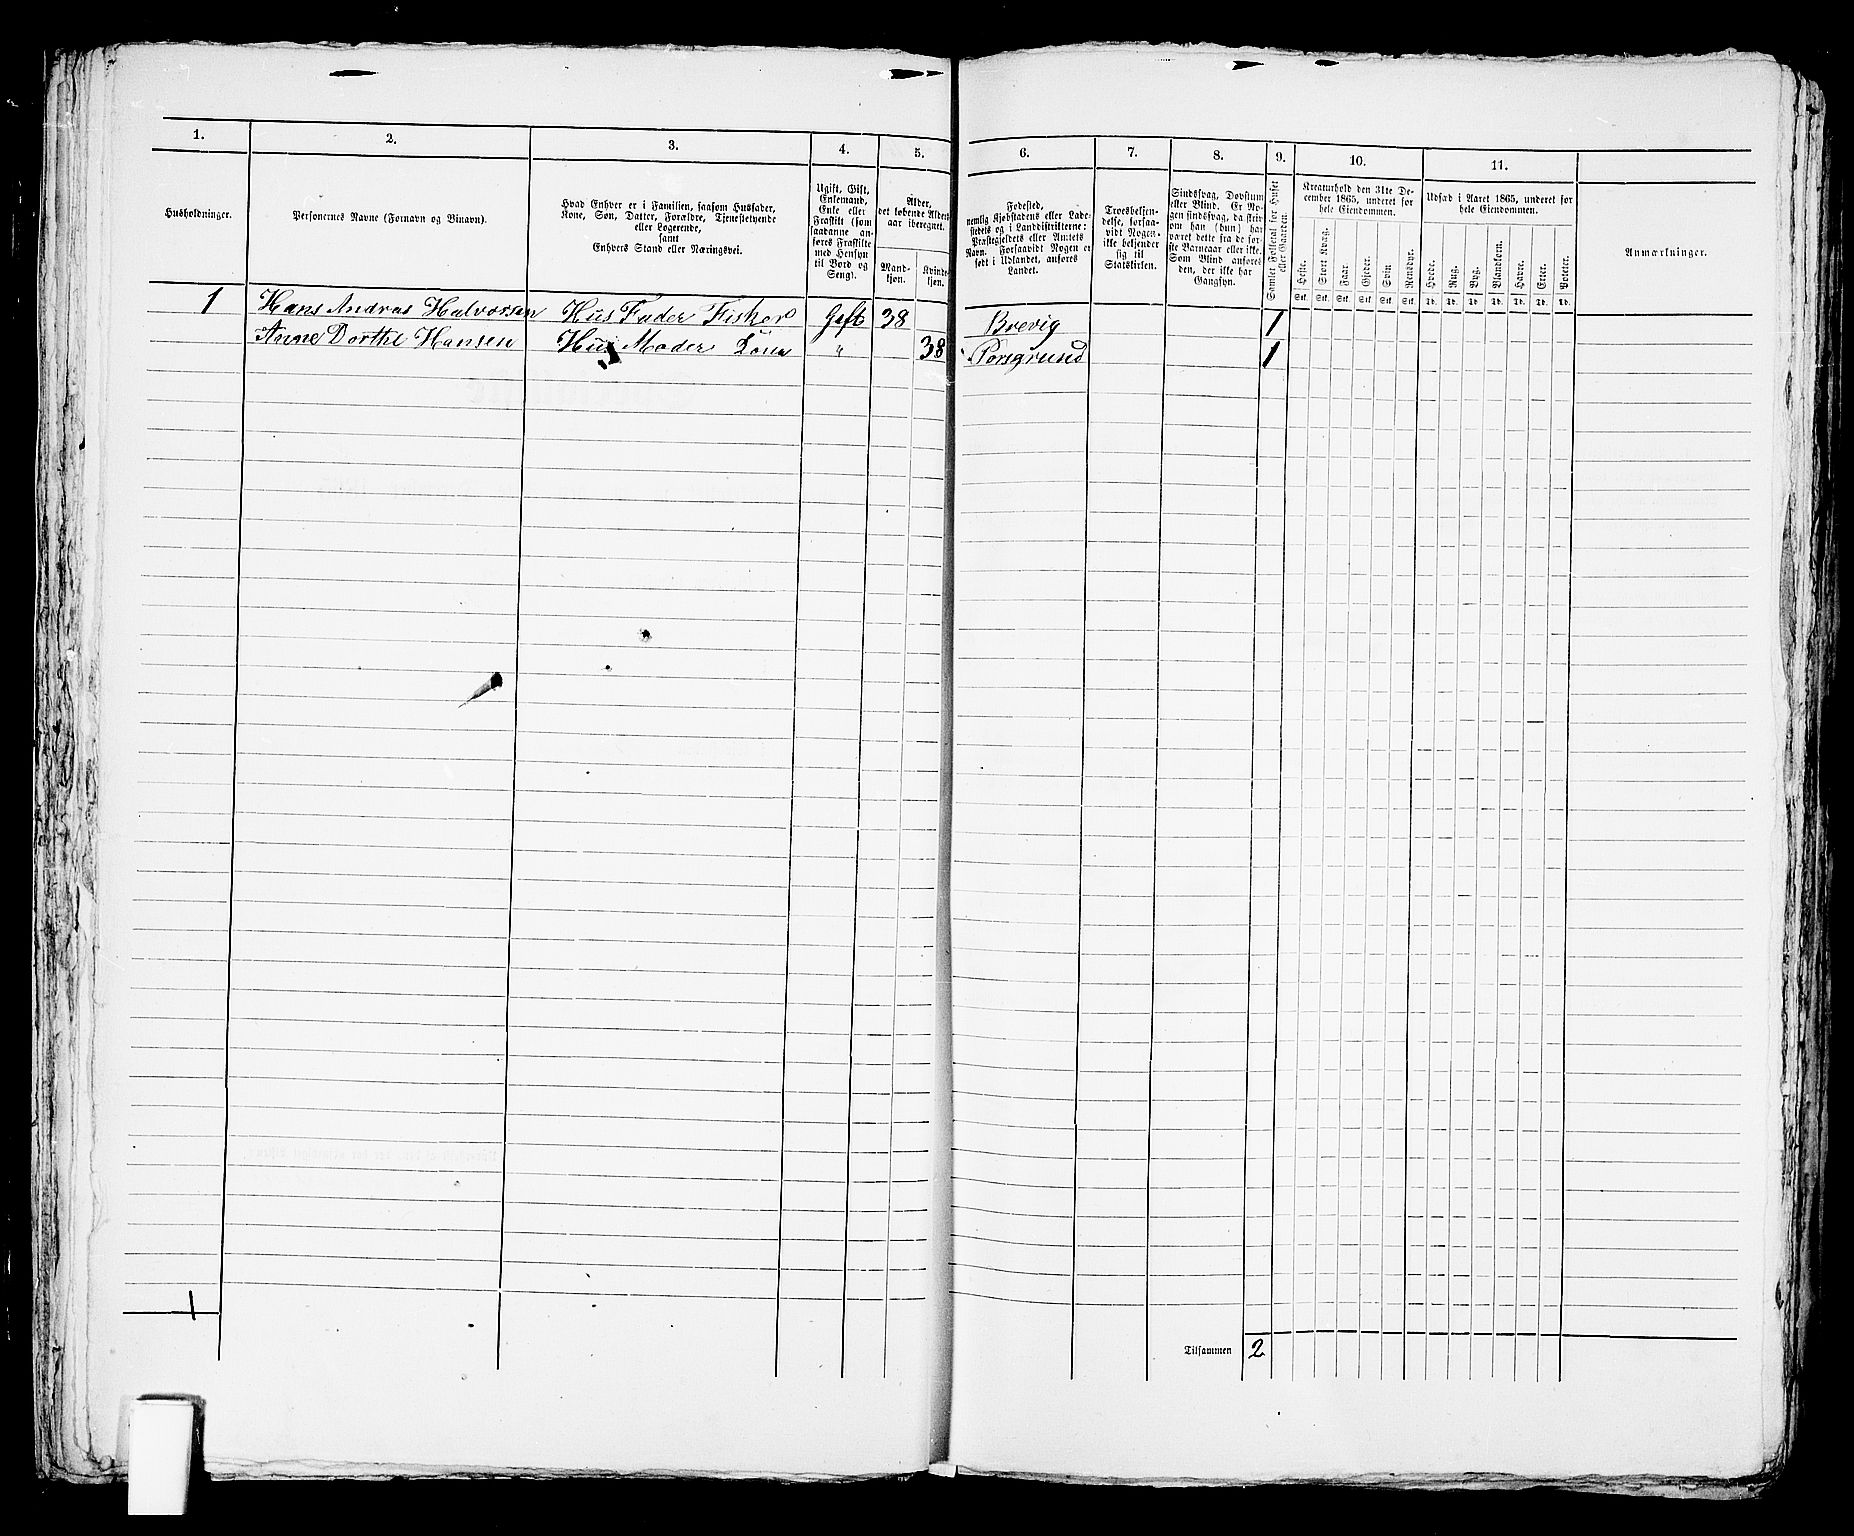 1.
2.
3.
4.
5.
6.
7.
8.
9.
10.
11.
Husholdninger.
Personernes Navne (Fornavn og Binavn).
Hvad Enhver er i Familien, saasom Husfader,
Kone, Søn, Datter, Forældre, Tjenestetyende
eller Logerende,
samt
Enhvers Stand eller Næringsvei.
Ugift, Gift,
Enkemand,
Enke eller
Fraskilt (som
saadanne an-
føres Fraskilte
med Hensyn
til Bord og
Seng).
Alder,
det løbende Alders-
aar iberegnet.
Mand-
kjøn.
Kvinde-
kjøn.
Fødested,
nemlig Kjøbstadens eller Lade-
stedets og i Landdistrikterne:
Præstegjeldets eller Amtets
Navn. Forsaavidt Nogen er
født i Udlandet, anføres
Landet.
Troesbekjen-
delse, forsaa-
vidt Nogen
ikke bekjender
sig til
Statskirken.
Sindssvag, Døvstum
eller Blind. Er No-
gen sindssvag, da skriv
om han (hun) har
været dette fra de før-
ste Barneaar eller ikke.
Som Blind anføres
den, der ikke har
Gangsyn.
Samlet Folketal for Huset
eller Gaarden.
Kreaturhold den 31te De-
cember 1865, underet for
hele Eiendommen.
Heste.
Stort Kvæg.
Faar.
Gjeder.
Svin
Rensdyr.
Stk. Stk. Stk. Stk. Stk. Stk.
Udsæd i Aaret 1865, underet for
hele Eiendommen.
Hvede.
Rug.
Byg.
Blandkorn.
Havre.
Erter.
Poteter.
Td. Td. Td. Td. Td. Td. Td.
Anmærkninger.
1 Hans Andras Halvorsen Hus Fader Fisker Gift 38 Brevig 1
Anne Dorthe Hansen Hus Moder Kone " 38 Porsgrund 1
1
Tilsammen 2